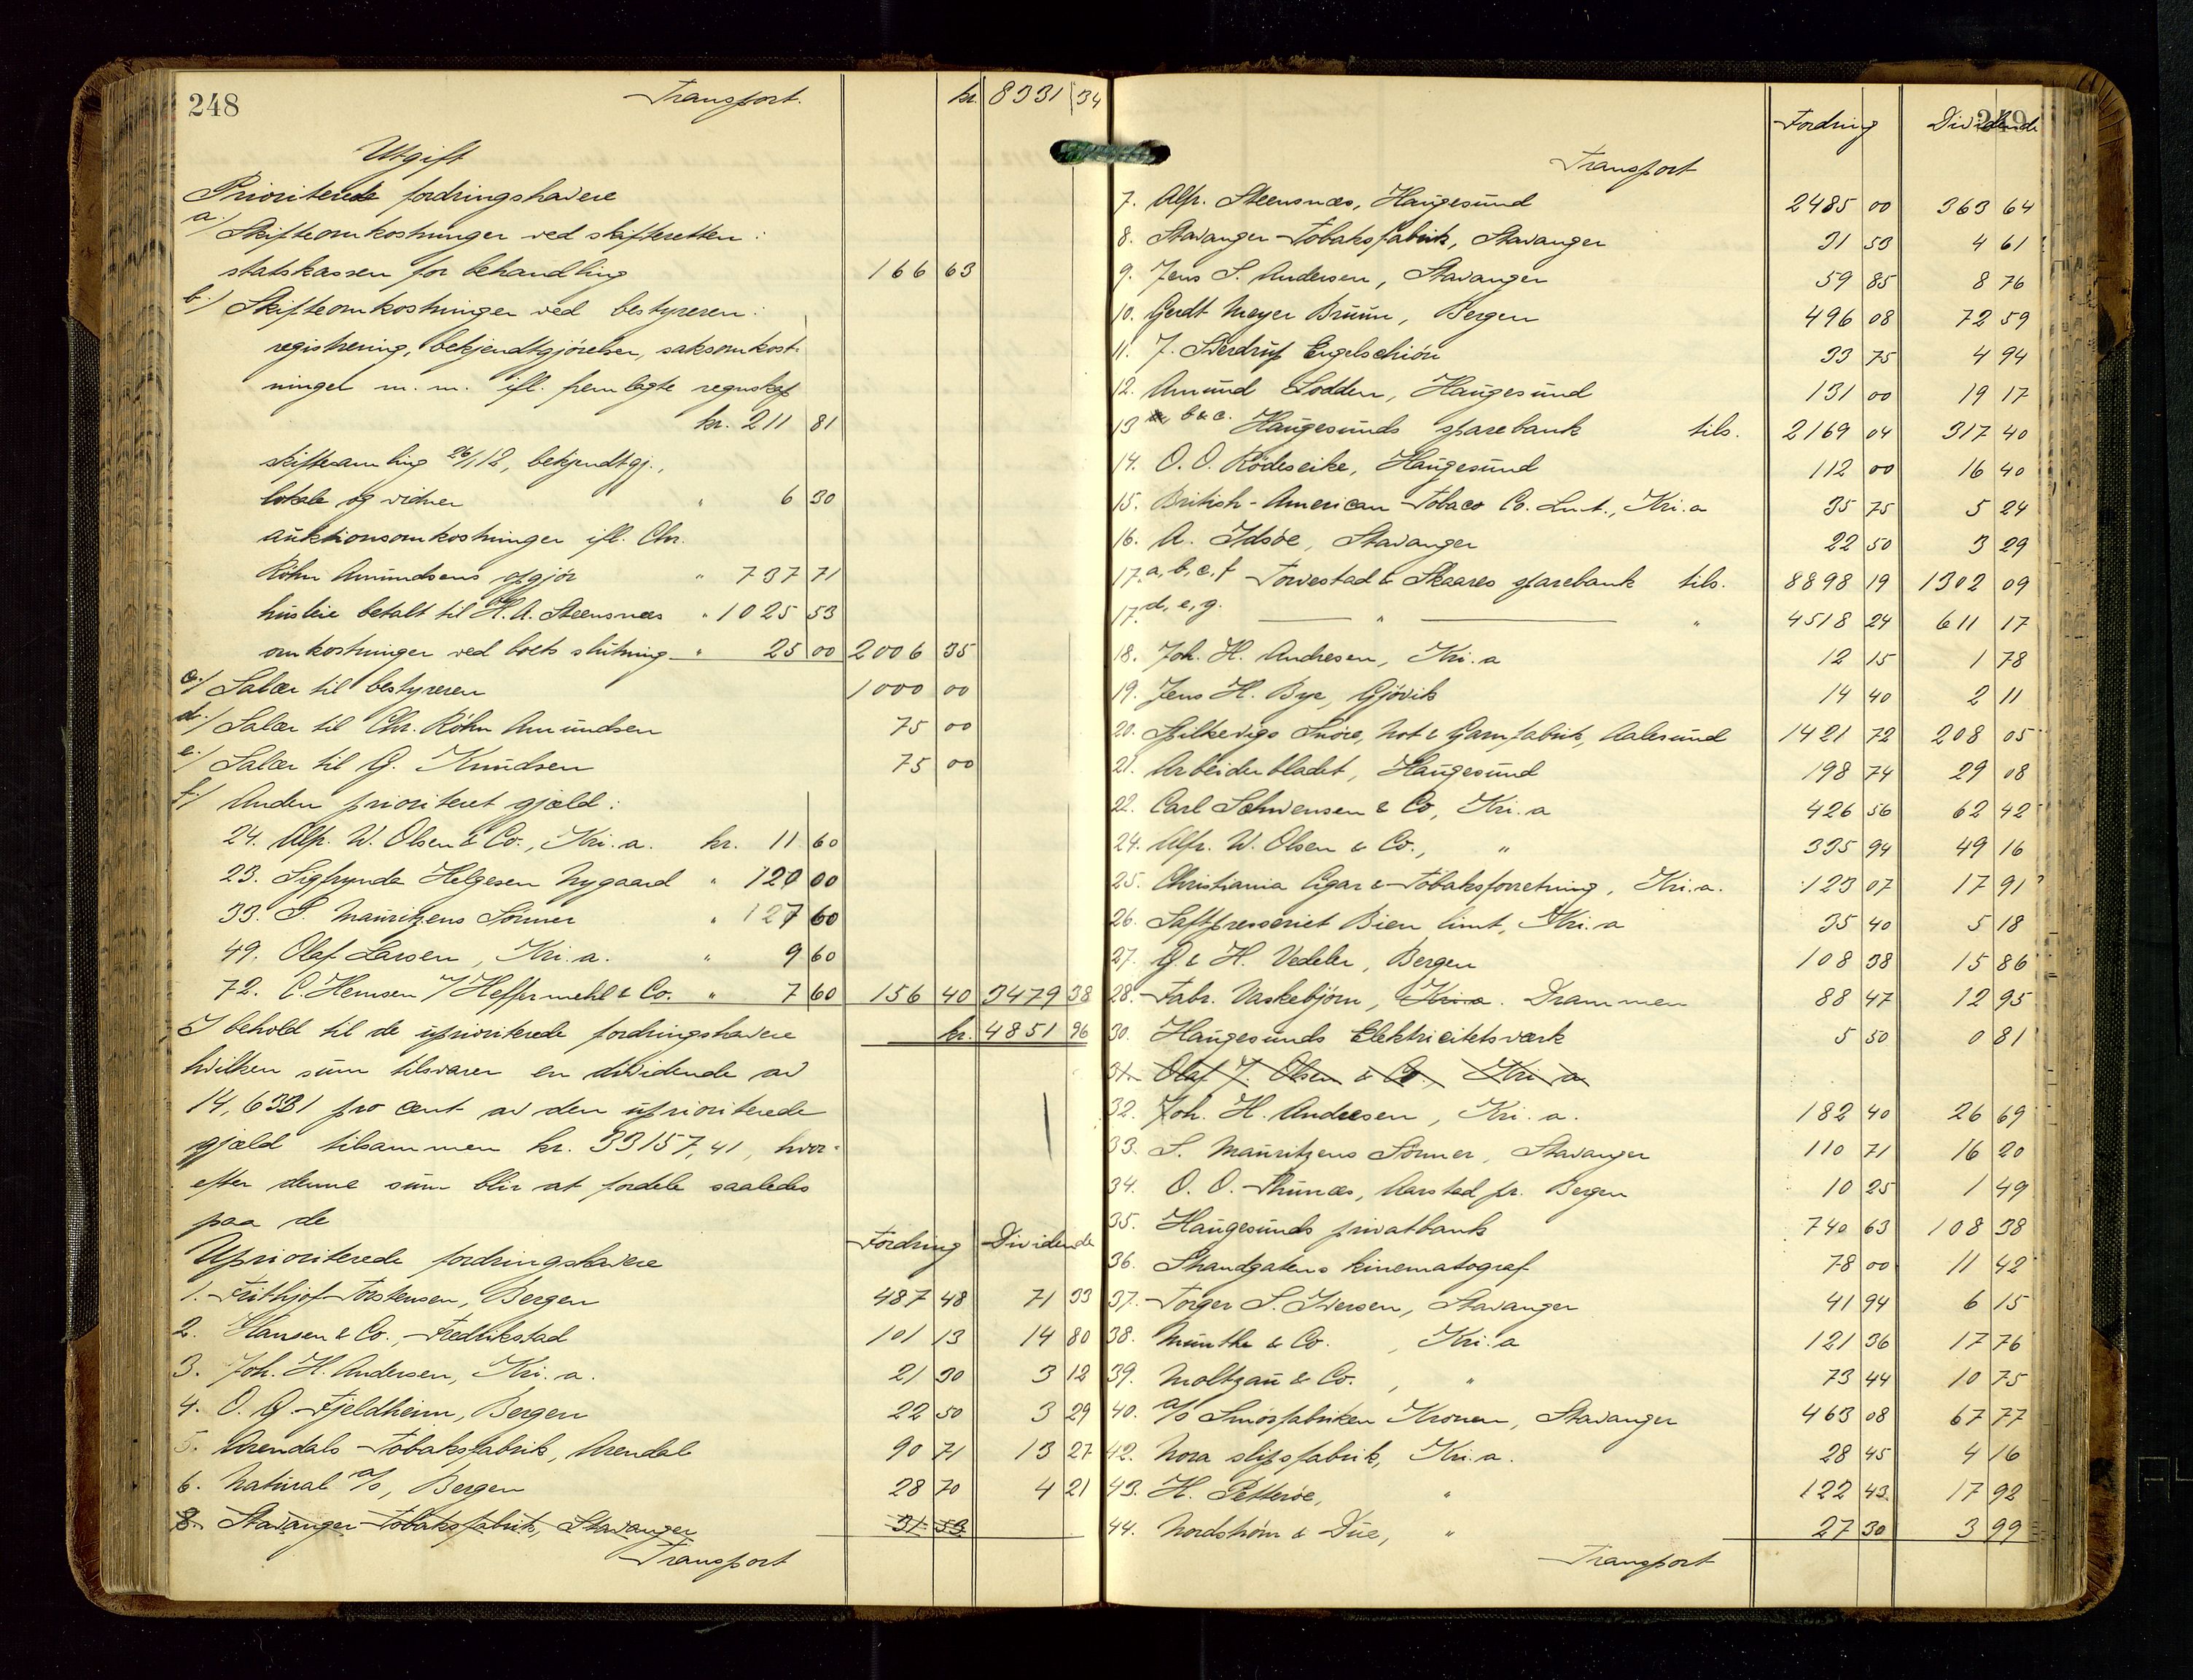 248
Transport. kr. 8331 34
Utgift
Prioriterede fordringshavere
a./ Skifteomkostninger ved skifteretten:
statskassen for behandling 166 63
b./ Skifteomkostninger ved bestyreren:
registrering, bekjendtgjörelser, saksomkost-
ninger m.m. ifl. fremlagte regnskap
kr. 211 81
skiftesamling 26/1 12, bekjendtgj.,
lokale og vidner " 6 30
auktionsomkostninger ifl. Chr.
Röhn Amundsens opgjör " 737 71
husleie betalt til H. A. Steensnæs " 1025 53
omkostninger ved boets slutning " 25 00 2006 35
c./ Salær til bestyreren 1000 00
d./ Salær til Chr. Röhn Amundsen 75 00
e./ Salær til G. Knudsen 75 00
f./ Anden prioriteret gjæld:
24. Alfr. W. Olsen & Co., Kri.a. kr. 11 60
23. Sigfrynda Helgesen Nygaard " 120 00
33. S. Mauritzens Sönner " 127 60
49. Olaf Larsen, Kri.a. " 9 60
72. C. Hemsen / Heffermehl & Co. " 7 60 156 40 3479 38
I behold til de uprioriterede fordringshavere kr. 4851 96
hvilken sum tilsvarer en dividende av
14,6331 pro cent av den uprioriterede
gjæld tilsammen kr. 33157,41, hvor-
efter denne sum blir at fordele saaledes
paa de
Fordring Dividende
Uprioriterede fordringshavere
1. Frithjof Torstensen, Bergen 487 48 71 33
2. Hansen & Co., Fredrikstad 101 13 14 80
3. Joh. H. Andersen, Kri.a. 21 30 3 12
4. O. G. Fjeldheim, Bergen 22 50 3 29
5. Arendals Tobaksfabrik, Arendal 90 71 13 27
6. Natural A/S, Bergen 28 70 4 21
8. Stavanger Tobaksfabrik, Stavanger 31 53
Transport
249
Fordring Dividende
Transport
7. Alfr. Steensnæs, Haugesund 2485 00 363 64
8. Stavanger Tobaksfabrik, Stavanger 31 53 4 61
9. Jens S. Andersen, Stavanger 59 85 8 76
10. Gerdt Meyer Bruun, Bergen 496 08 72 59
11. J. Sverdrup Engelschiön 33 75 4 94
12. Amund Lodden, Haugesund 131 00 19 17
13 b & c. Haugesunds sparebank tils. 2169 04 317 40
14. O. O. Rödeseike, Haugesund 112 00 16 40
15. British-American Tobaco Co. Lmt., Kri.a 35 75 5 24
16. A. Idsöe, Stavanger 22 50 3 29
17. a, b, c, f Torvestad & Skaares sparebank tils. 8898 19 1302 09
17. d, e, g. " " 4518 24 611 17
18. Joh. H. Andresen, Kri.a 12 15 1 78
19. Jens H. Bye, Gjövik 14 40 2 11
20. Spilkevigs Snöre, Not & Garnfabrik, Aalesund 1421 72 208 05
21. Arbeiderbladet, Haugesund 198 74 29 08
22. Carl Schwensen & Co, Kri.a 426 56 62 42
24. Alfr. W. Olsen & Co., " 335 94 49 16
25. Christiania Cigar & Tobaksforretning, Kri.a. 123 07 17 91
26. Saftpresseriet Bien limt, Kri.a 35 40 5 18
27. G. & H. Vedeler, Bergen 108 38 15 86
28. Fabr. Vaskebjörn, Kri.a. Drammen 88 47 12 95
30. Haugesunds Elektricitetsværk 5 50 0 81
31. Olaf T. Olsen & Co., Kri.a
32. Joh. H. Andresen, Kri.a. 182 40 26 69
33. S. Mauritzens Sönner, Stavanger 110 71 16 20
34. O. O. Thunæs, Aarstad pr. Bergen 10 25 1 49
35. Haugesunds privatbank 740 63 108 38
36. Strandgatens kinematograf 78 00 11 42
37. Torger S. Iversen, Stavanger 41 94 6 15
38. Munthe & Co., Kri.a 121 36 17 76
39. Moltzau & Co., " 73 44 10 75
40. A/S Smörfabriken Kronen, Stavanger 463 08 67 77
42. Nora slipsfabrik, Kri.a. 28 45 4 16
43. H. Petteröe, " 122 43 17 92
44. Nordström & Due, " 27 30 3 99
Transport